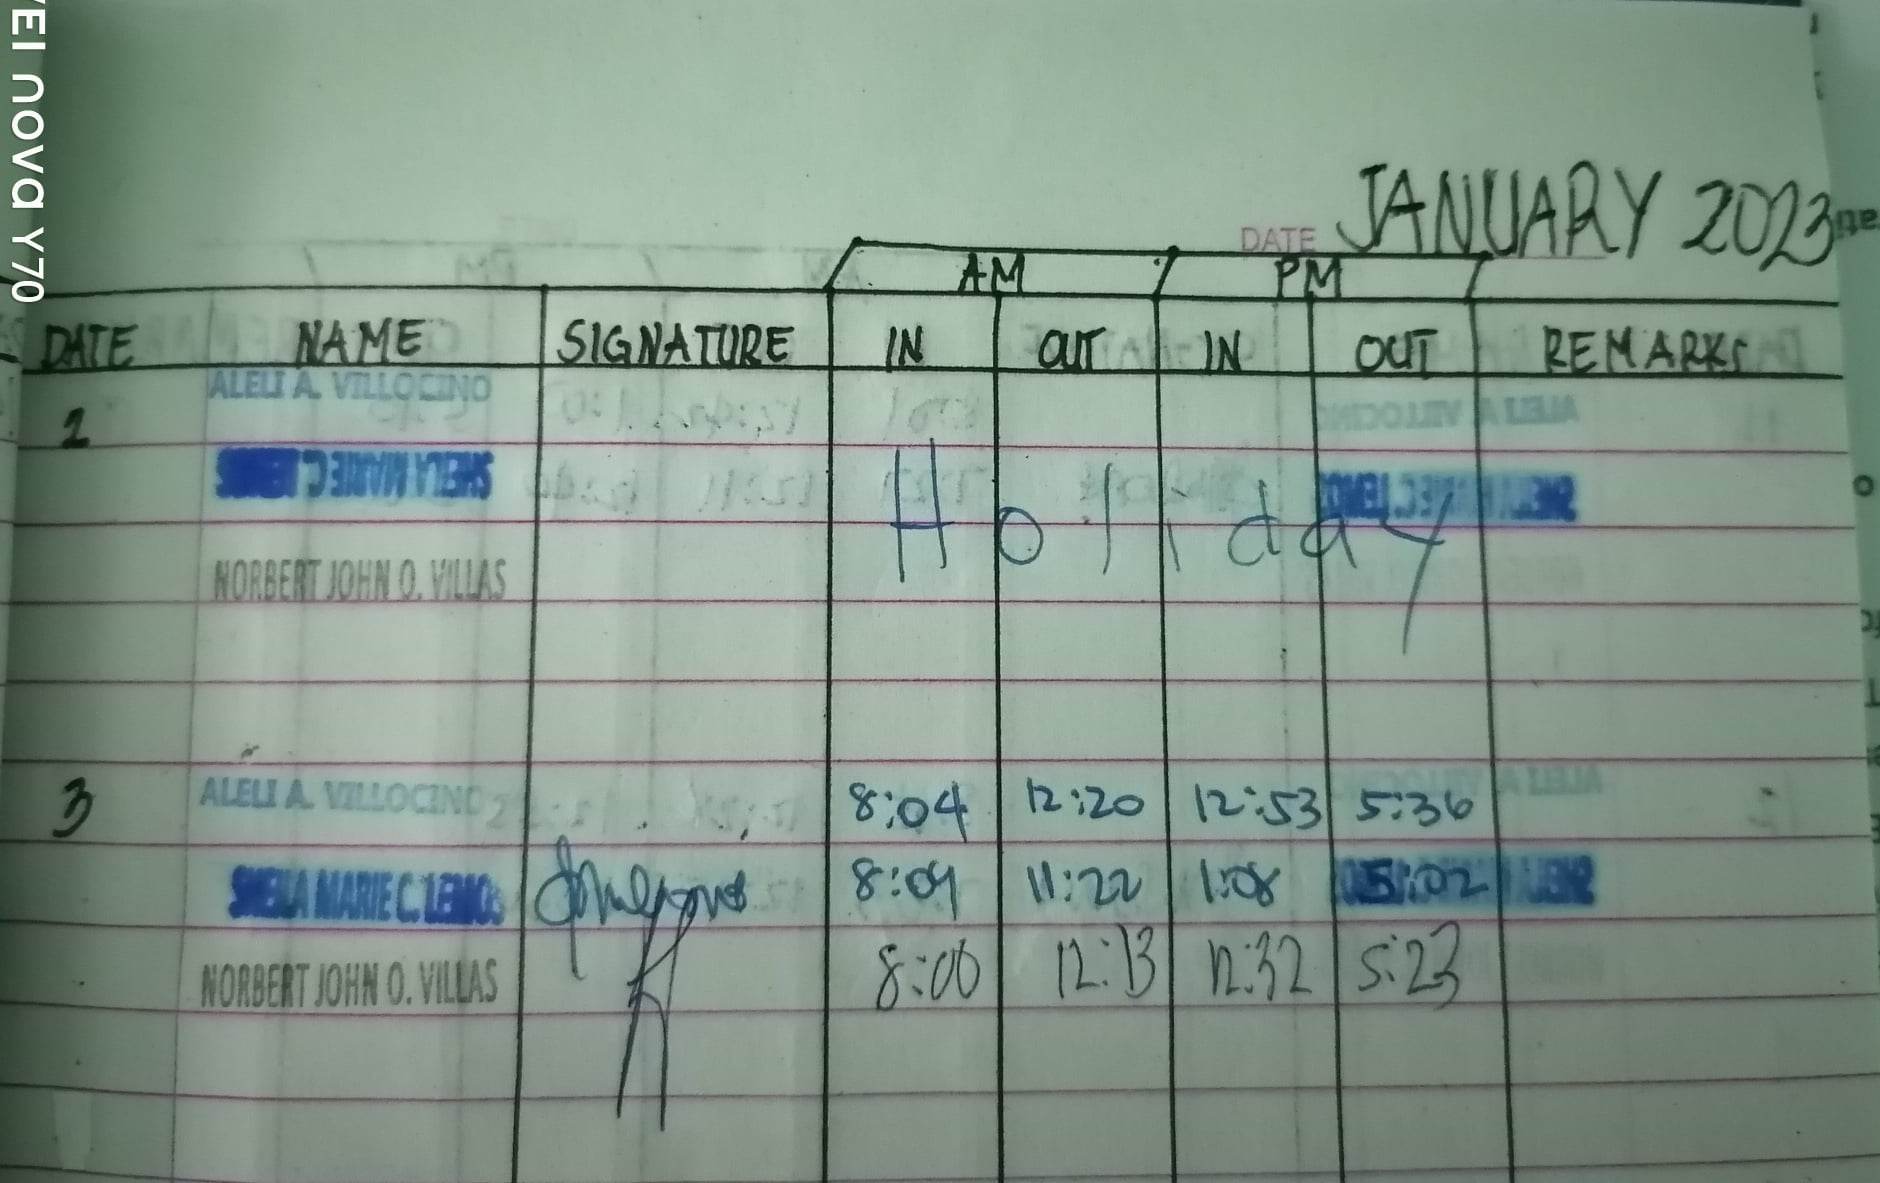 nova Y70
DATE JANUARY 2023
AM PM
DATE NAME SIGNATURE IN OUT IN OUT REMARKS
2 ALELI A. VILLOCINO
SHEILA MARIE C.
Holiday
NORBERT JOHN O. VILLAS
3 ALELI A. VILLOCINO 8:04 12:20 12:53 5:36
SHEILA MARIE C. LEMOS 8:09 11:22 1:08 5:02
NORBERT JOHN O. VILLAS 8:00 12:13 12:32 5:23